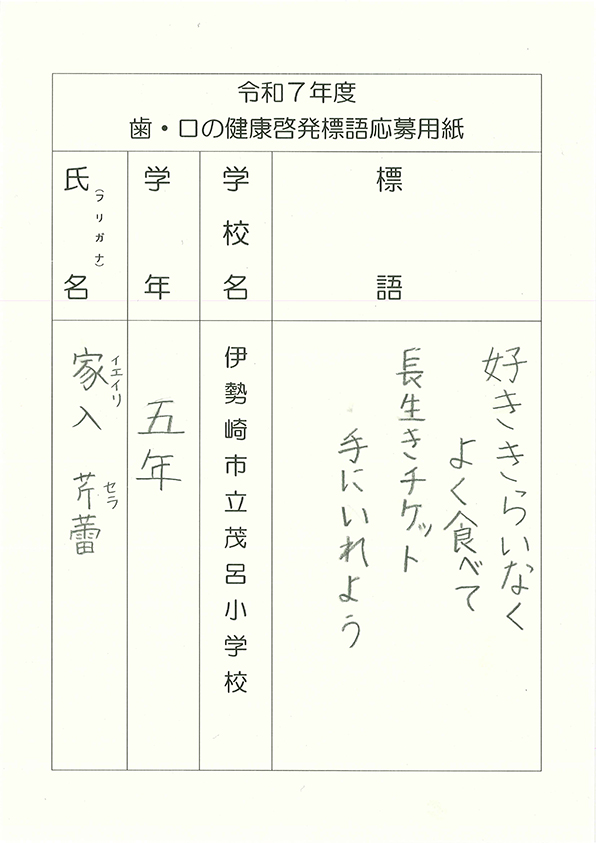 令和7年度
歯・口の健康啓発標語応募用紙
標語
好ききらいなく
よく食べて
長生きチケット
手にいれよう
学校名
伊勢崎市立茂呂小学校
学年
五年
氏名
(フリガナ)
家入 芹蕾
イエイリ セラ